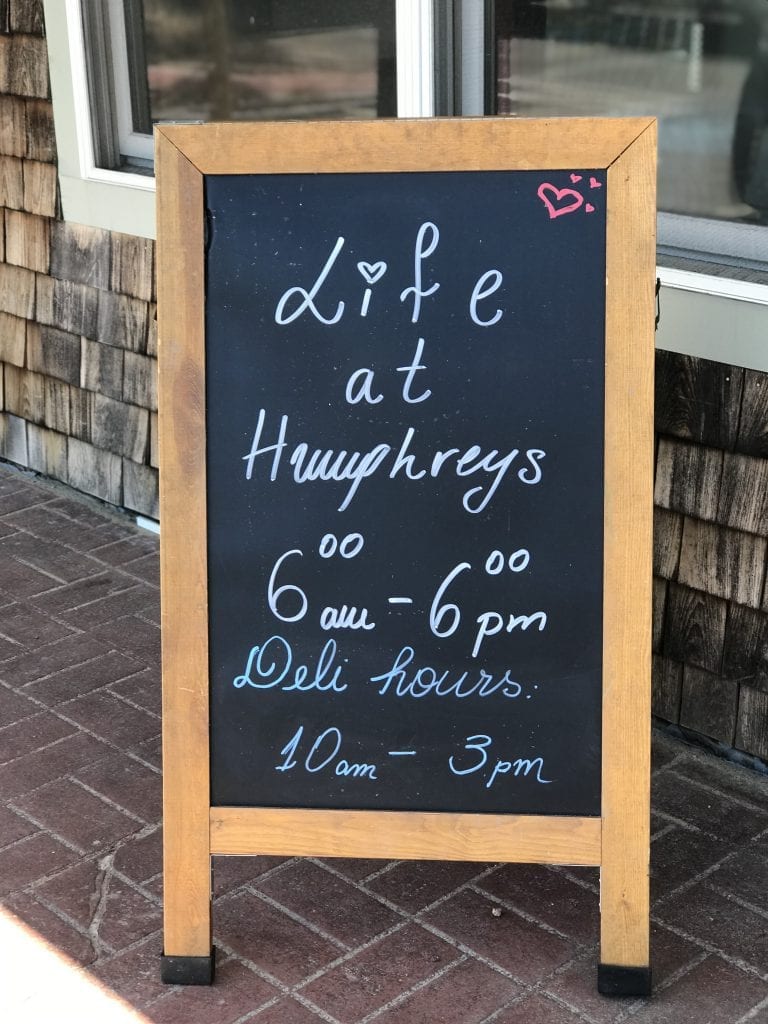 Life
at
Humphreys
6⁰⁰ am - 6⁰⁰ pm
Deli hours:
10am - 3pm